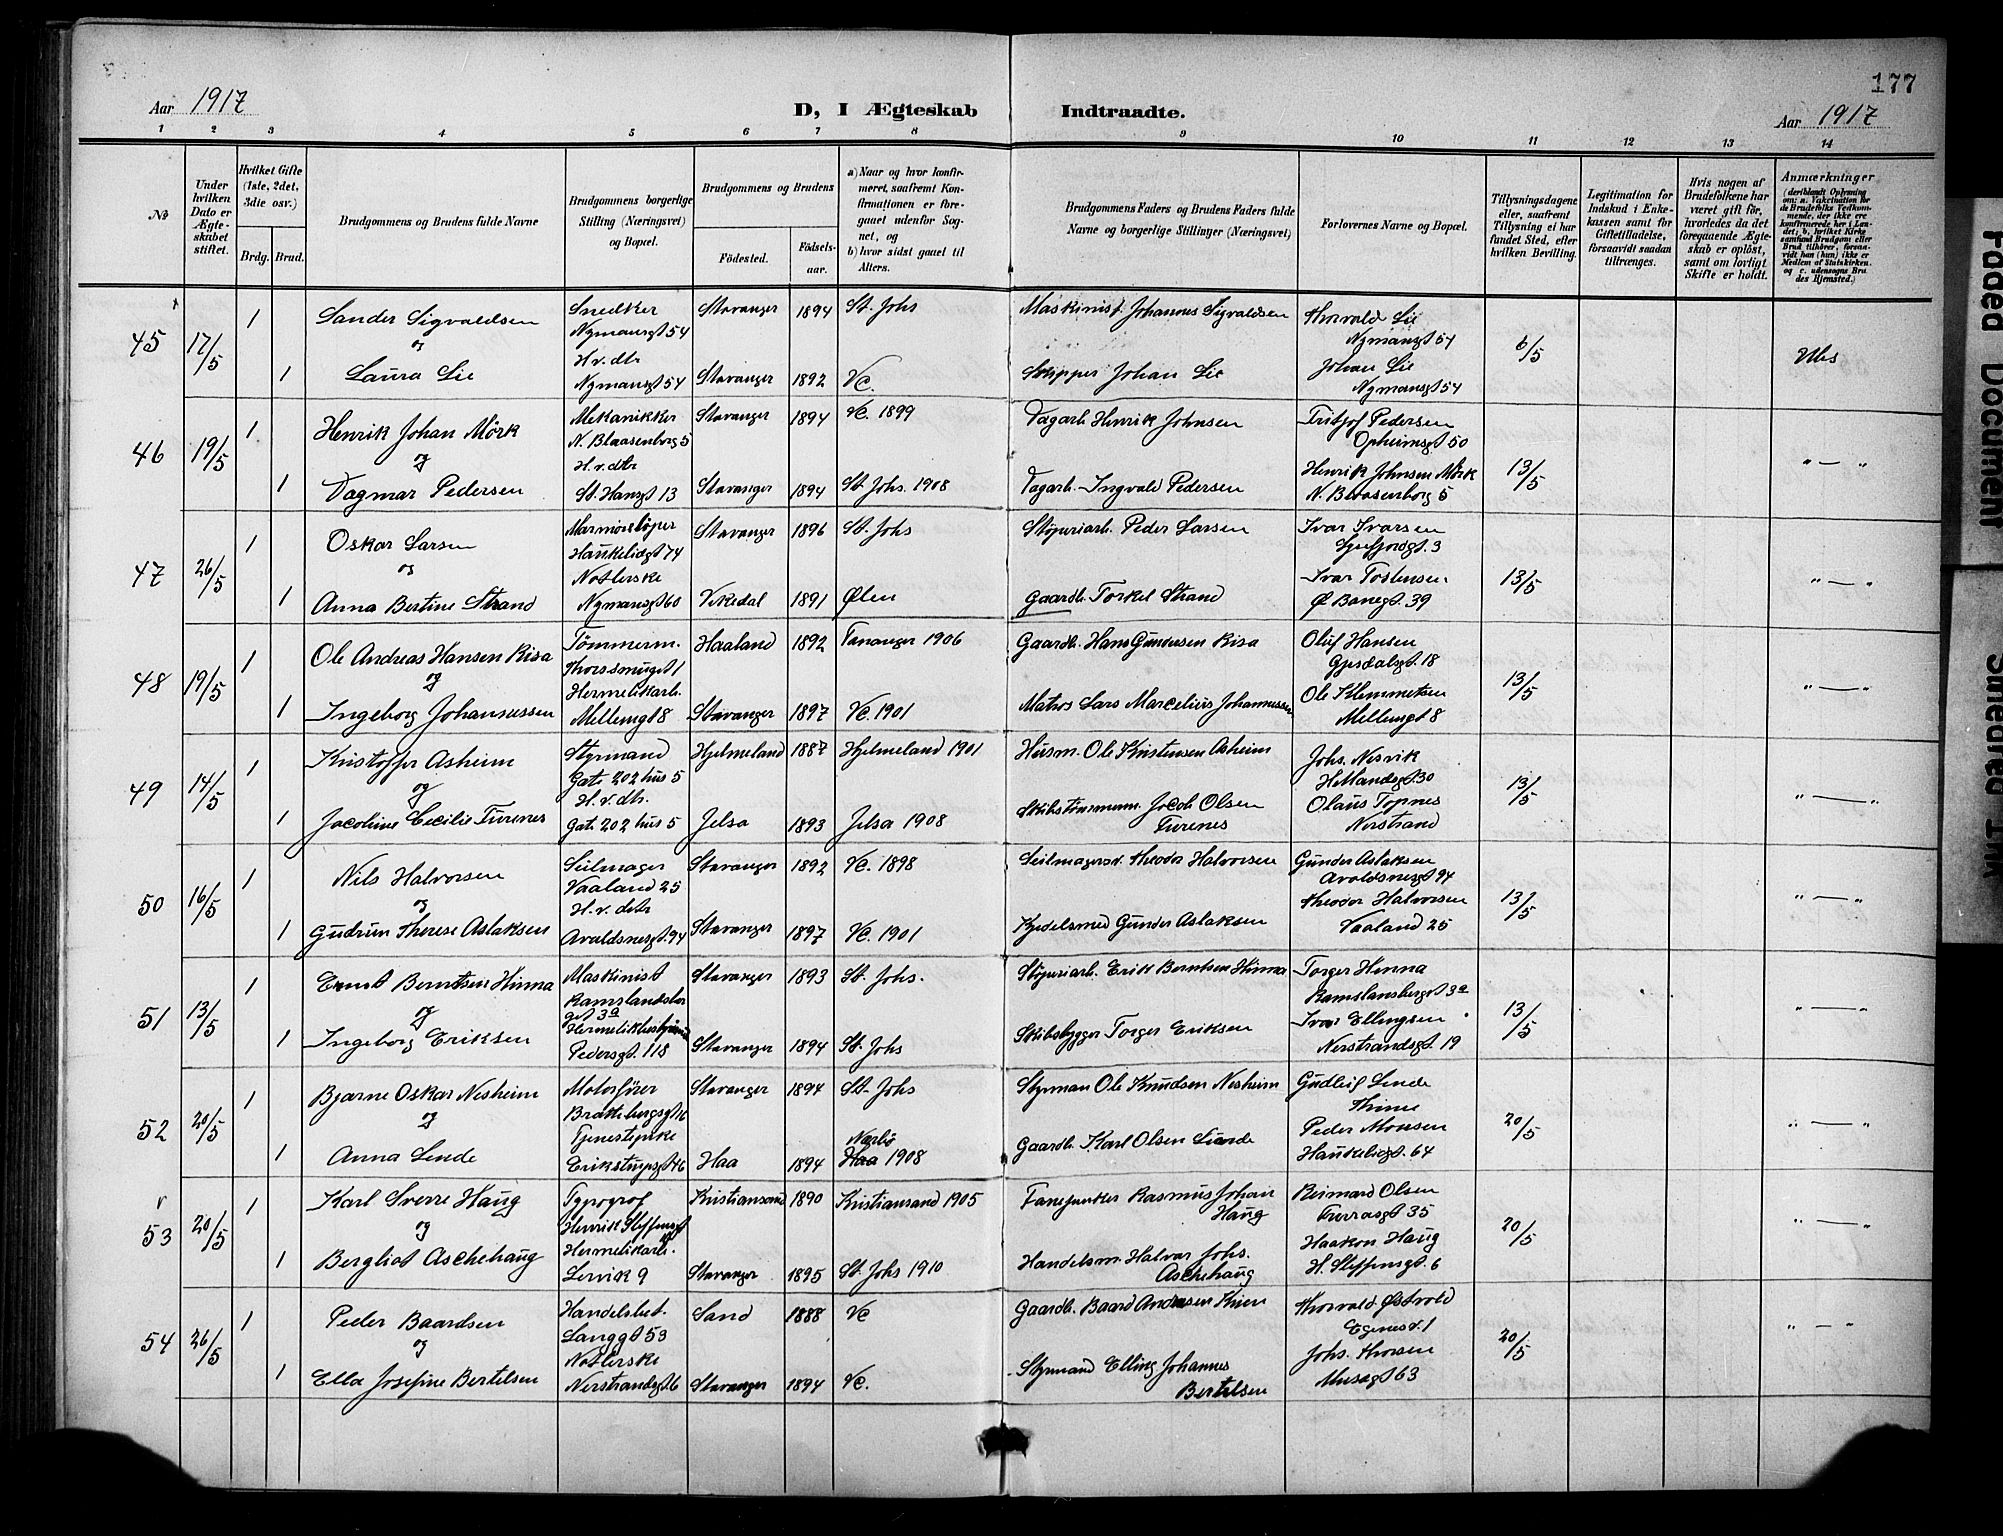 177
Aar 1917
D, I Ægteskab Indtraadte.
Aar 1917
1 2 3 4 5 6 7 8 9 10 11 12 13 14
№
Under hvilken Dato er Ægteskabet stiftet.
Hvilket Gifte (1ste, 2det, 3die osv.)
Brdg. Brud.
Brudgommens og Brudens fulde Navne
Brudgommens borgerlige Stilling (Næringsvei) og Bopæl.
Brudgommens og Brudens
Fødested.
Fødselsaar.
a) Naar og hvor konfirmeret, saafremt Konfirmationen er foregaaet udenfor Sognet, og
b) hvor sidst gaaet til Alters.
Brudgommens Faders og Brudens Faders fulde Navne og borgerlige Stillinger (Næringsvei)
Forlovernes Navne og Bopæl.
Tillysningsdagene eller, saafremt Tillysning ei har fundet Sted, efter hvilken Bevilling.
Legitimation for Indskud i Enkekassen samt for Giftetilladelse, forsaavidt saadan tiltrænges.
Hvis nogen af Brudefolkene har været gift før, hvorledes da det foregaaende Ægteskab er opløst, samt om lovligt Skifte er holdt.
Anmærkninger
(deriblandt Oplysning om: a. Vakcination for de Brudefolks Vedkommende, der ikke ere konfirmerede her i Landet; b. hvilket Kirkesamfund Brudgom eller Brud tilhører, forsaavidt han (hun) ikke er Medlem af Statskirken, og c. udensogns Brudes Hjemsted.)
45 17/5 1 Sander Sigvaldsen Snedker Nymansgt 54 Stavanger 1894 St. Johs Maskinist Johannes Sigvaldsen Thorvald Lie Nymansgt 54 6/5
og
1 Laura Lie H. v. dtr Nymansgt 54 Stavanger 1892 Vc. Skipper Johan Lie Johan Lie Nymansgt 54
46 19/5 1 Henrik Johan Mörk Mekanikker N. Blaasenborg 5 Stavanger 1894 Vc. 1899 Dagarb. Henrik Johnsen Fritjof Pedersen Opheimsgt 50 13/5 " — "
og
1 Dagmar Pedersen H. v. dtr St. Hansgt 13 Stavanger 1894 St. Johs. 1908 Dagarb. Ingvald Pedersen Henrik Johnsen Mörk N. Blaasenborg 5
47 26/5 1 Oskar Larsen Haukeligt 74 Stavanger 1896 St. Johs Støperiarb. Peder Larsen Ivar Ivarsen Lysefjordgt. 3 13/5 " — "
og
1 Anna Bertine Strand Notlerske Nymansgt 60 Vikedal 1891 Ølen Gaardb. Torkel Strand Ivar Tostensen Ø Banegt. 39
48 19/5 1 Ole Andreas Hansen Risa Tømmerm. Haaland 1892 Tananger 1906 Gaardb. Hans Gundersen Risa Oluf Hansen Gjesdalsgt. 18 13/5 " — "
og
1 Ingeborg Johannessen Hermetikarb. Mellemgt 8 Stavanger 1897 Vc. 1901 Matros Lars Marcelius Johannessen Ole Klemmetsen Mellemgt 8
49 14/5 1 Kristoffer Asheim Styrmand Gate 202 hus 5 Hjelmeland 1887 Hjelmeland 1901 Husm. Ole Kristensen Asheim Johs. Nesvik Hetlandsgt. 30 13/5 " — "
og
1 Jacobine Cecilie Turenes H. v. dtr. Gate 202 hus 5 Jelsa 1893 Jelsa 1908 Skibstømmerm. Jacob Olsen Turenes Olaus Topnes Nerstrand
50 16/5 1 Nils Halvorsen Seilmager Vaaland 25 Stavanger 1892 Vc. 1898 Seilmagersv. Theodor Halvorsen Gunder Aslaksen Avaldsnesgt 94 13/5 " — "
og
1 Gudrun Therese Aslaksen H. v. dtr Avaldsnesgt. 94 Stavanger 1897 Vc. 1901 Kjedelsmed Gunder Aslaksen Theodor Halvorsen Vaaland 25
51 13/5 1 Ernst Berntsen Hinna Maskinist Ramslandsber gt 3a Stavanger 1893 St. Johs. Støperiarb. Erik Berntsen Hinna Torger Hinna Ramslansbergt 3a 13/5 " — "
og
1 Ingeborg Eriksen Pedersgt. 118 Stavanger 1894 St. Johs Skibsbygger Torger Eriksen Ivar Ellingsen Nerstrandsgt. 19
52 20/5 1 Bjarne Oskar Nesheim Motorfører Brattebergsgt 16 Stavanger 1894 St. Johs Styrman Ole Knudsen Nesheim Gudleif Linde Thime 20/5 " — "
og
1 Anna Linde Tjenestepike Erikstrupsgt 46 Haa 1894 Nærbö Haa 1908 Gaardb. Karl Olsen Linde Peder Monsen Haukeligt. 64
53 20/5 1 Karl Sverre Haug Typograf Henrik Steffensgt Kristiansand 1890 Kristiansand 1905 Fanejunker Rasmus Johan Haug Reimard Olsen Furrasgt 35 20/5 " — "
og
1 Bergliot Aschehaug Hermetikarb. Lervik 9 Stavanger 1895 St. Johs 1910 Handelsm. Halvar Johs. Aschehaug Haakon Haug H. Steffensgt. 6
54 26/5 1 Peder Baardsen Handelsbet. Langgt 53 Sand 1888 Vc Gaardb. Baard Andersen Thorvald Østvold Egenesv. 1 20/5 " — "
og
1 Ella Josefine Bertelsen Notlerske Nerstrandsgt 6 Stavanger 1894 Vc. Styrmand Elling Johannes Bertelsen Johs. Thorsen Musegt 63
Faded Document
Smeared Ink